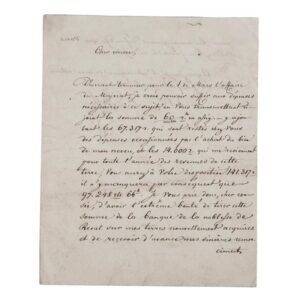 Cher cousin,
Devant terminer pour le 1 de Mars l'affaire
du Majorat, je crois pouvoir suffire aux dépenses
nécessaires à ce sujet en Vous transmettant ci
joint la somme de 60
tant les 67,317 r. qui sont restés chez Vous
des dépenses occasionnées par l'achat du bien
de mon neveu, et les 14,000 r. qui me reviennent
pour toute l'année des revenus de cette
terre, Vous aurez à Votre disposition 141,317 r.
il n'y manquera par conséquent que
97,248 66 Je Vous prie donc, cher cou-
sin, d'avoir l'extrême bonté de tirer cette
somme de la banque de la noblesse de
Reval sur mes terres nouvellement acquises
et de recevoir d'avance mes sincères remer
ciments